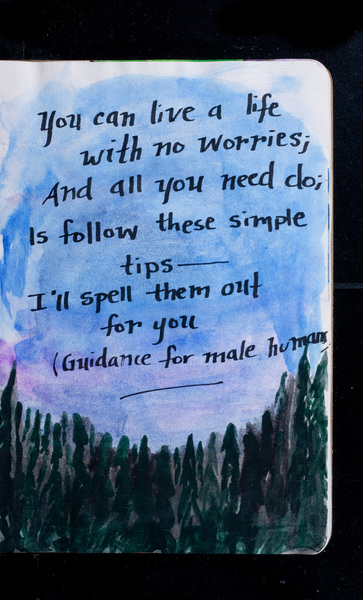 You can live a life
with no worries;
And all you need do;
Is follow these simple
tips—
I'll spell them out
for you
(Guidance for male humans